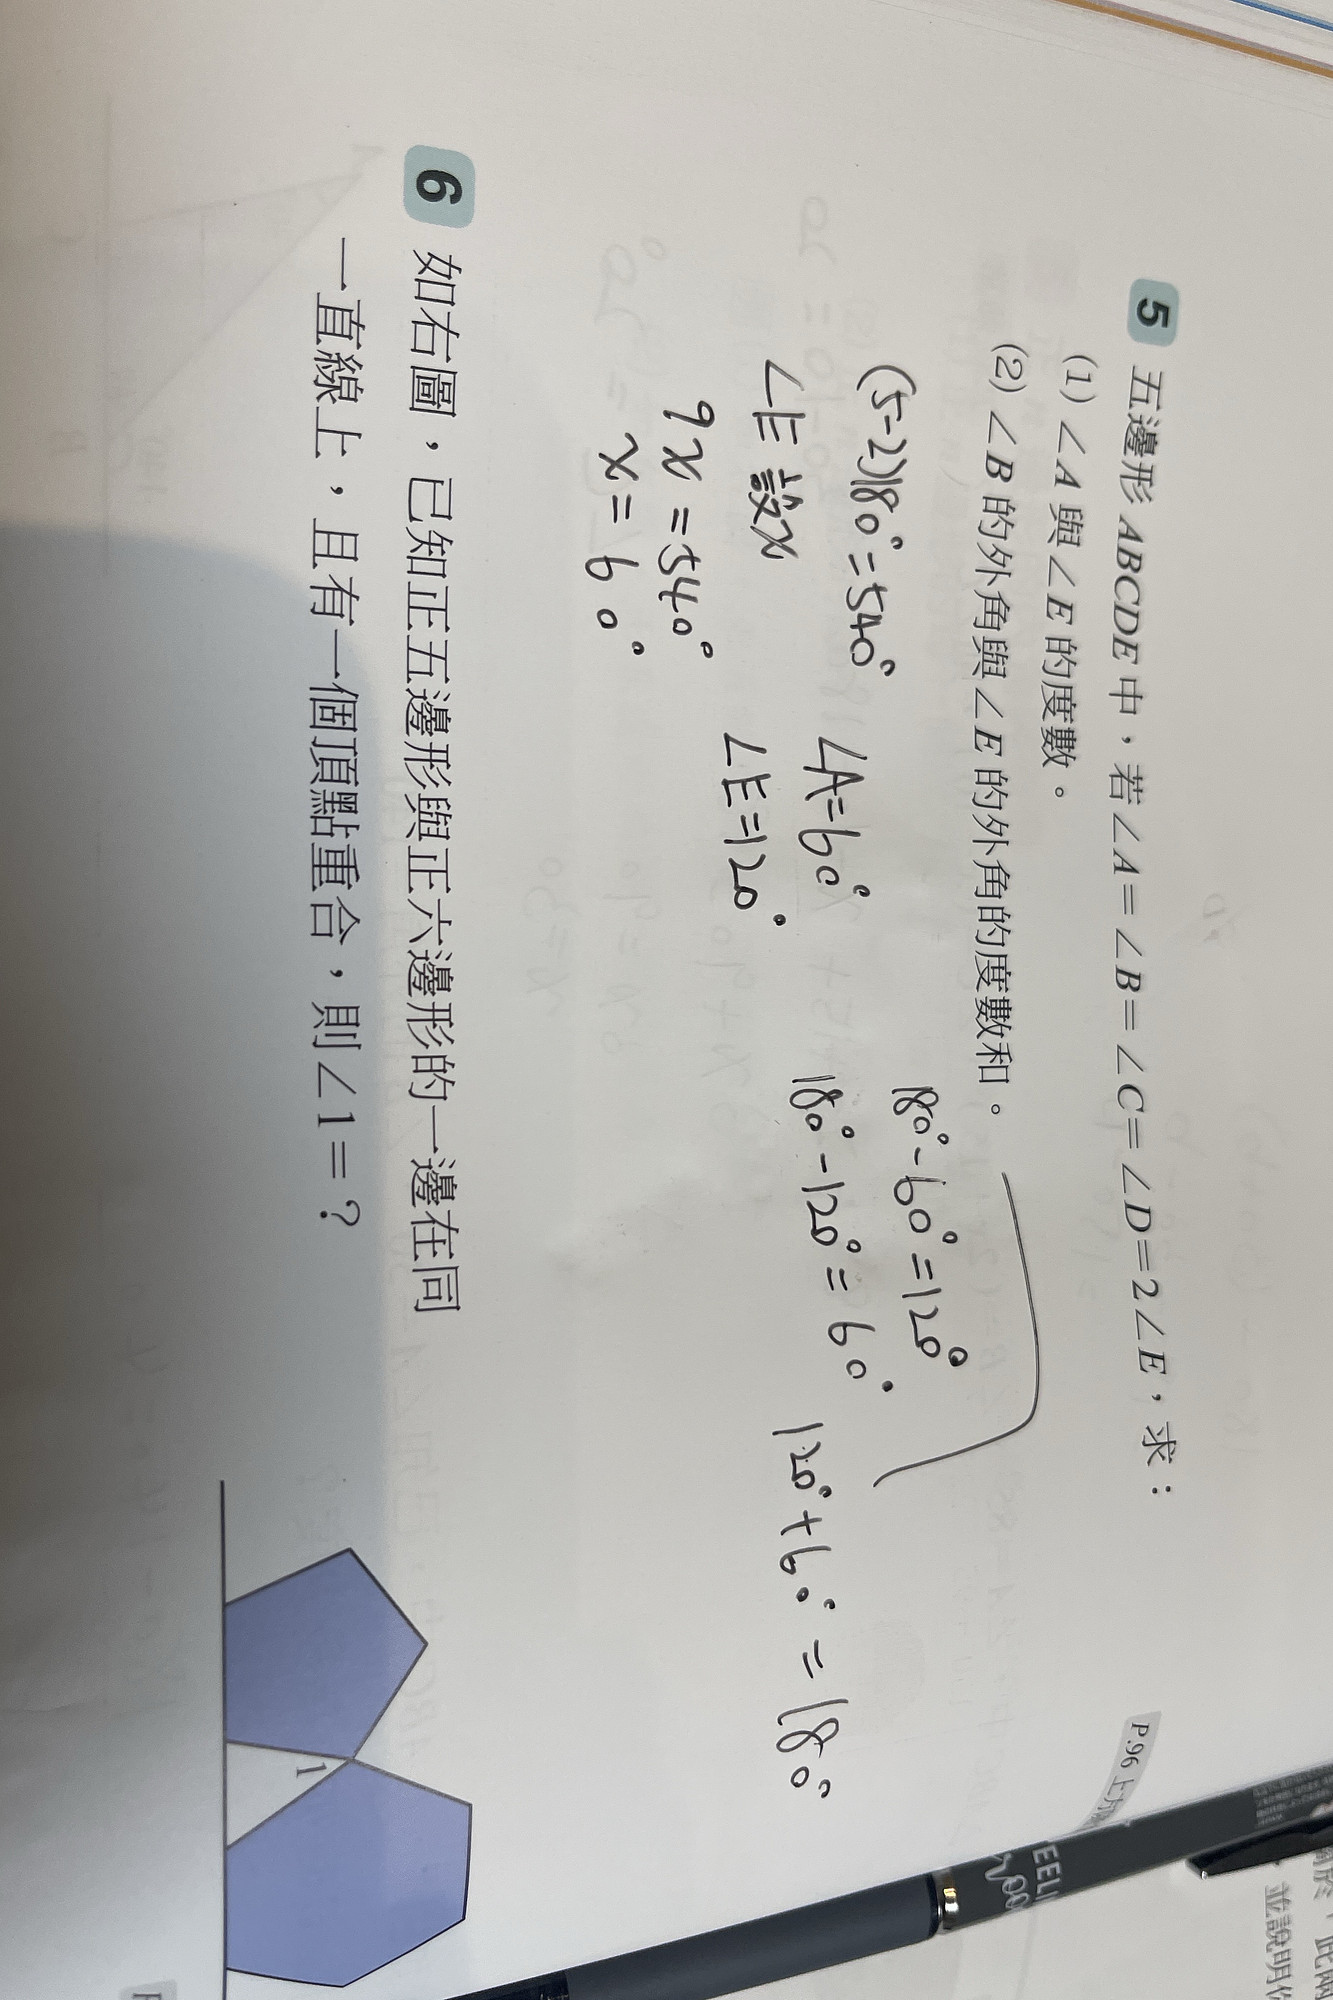 P.96
5 五邊形 ABCDE 中，若∠A=∠B=∠C=∠D=2∠E，求：
(1) ∠A 與∠E 的度數。
(2) ∠B 的外角與∠E 的外角的度數和。
(5-2)180°=540°
∠E 設x
9x=540°
x=60°
∠A=60°
∠E=120°
180°-60°=120°
180°-120°=60°
120°+60°=180°
6 如右圖，已知正五邊形與正六邊形的一邊在同
一直線上，且有一個頂點重合，則∠1=？
1